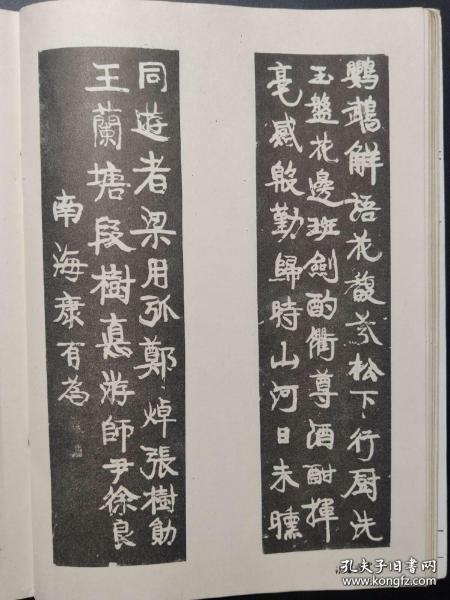 鸚鵡解語花馥芬松下行厨洗
玉盤花邊班劍酌衢尊酒酣揮
亳感殷勤歸時山河日未曛
同遊者梁用弧鄭焯張樹勛
王蘭塘段樹惪游師尹徐良
南海康有為
孔夫子旧书网
www.kongfz.com